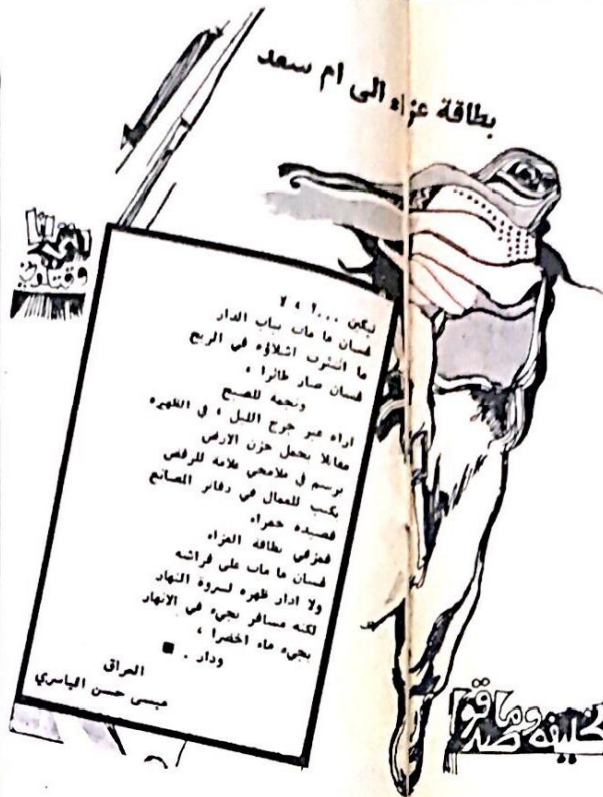 بطاقة عزاء الى ام سعد
تبكين ...؟ ، لا
غسان ما مات بباب الدار
ما انتثرت اشلاؤه في الريح
غسان صار طائرا ،
ونجمة للصبح
اراه عبر جرح الليل ، في الظهيره
مقاتلا يحمل حزن الارض
يرسم في ملامحي علامة للرفض
يكتب للعمال في دفاتر المصانع
قصيدة حمراء
فمزقي بطاقة العزاء
غسان ما مات على فراشه
ولا ادار ظهره لسروة النهار
لكنه مسافر يجيء في الانهار
يجيء ماء اخضرا ،
ودار . ■
العراق
عيسى حسن الياسري